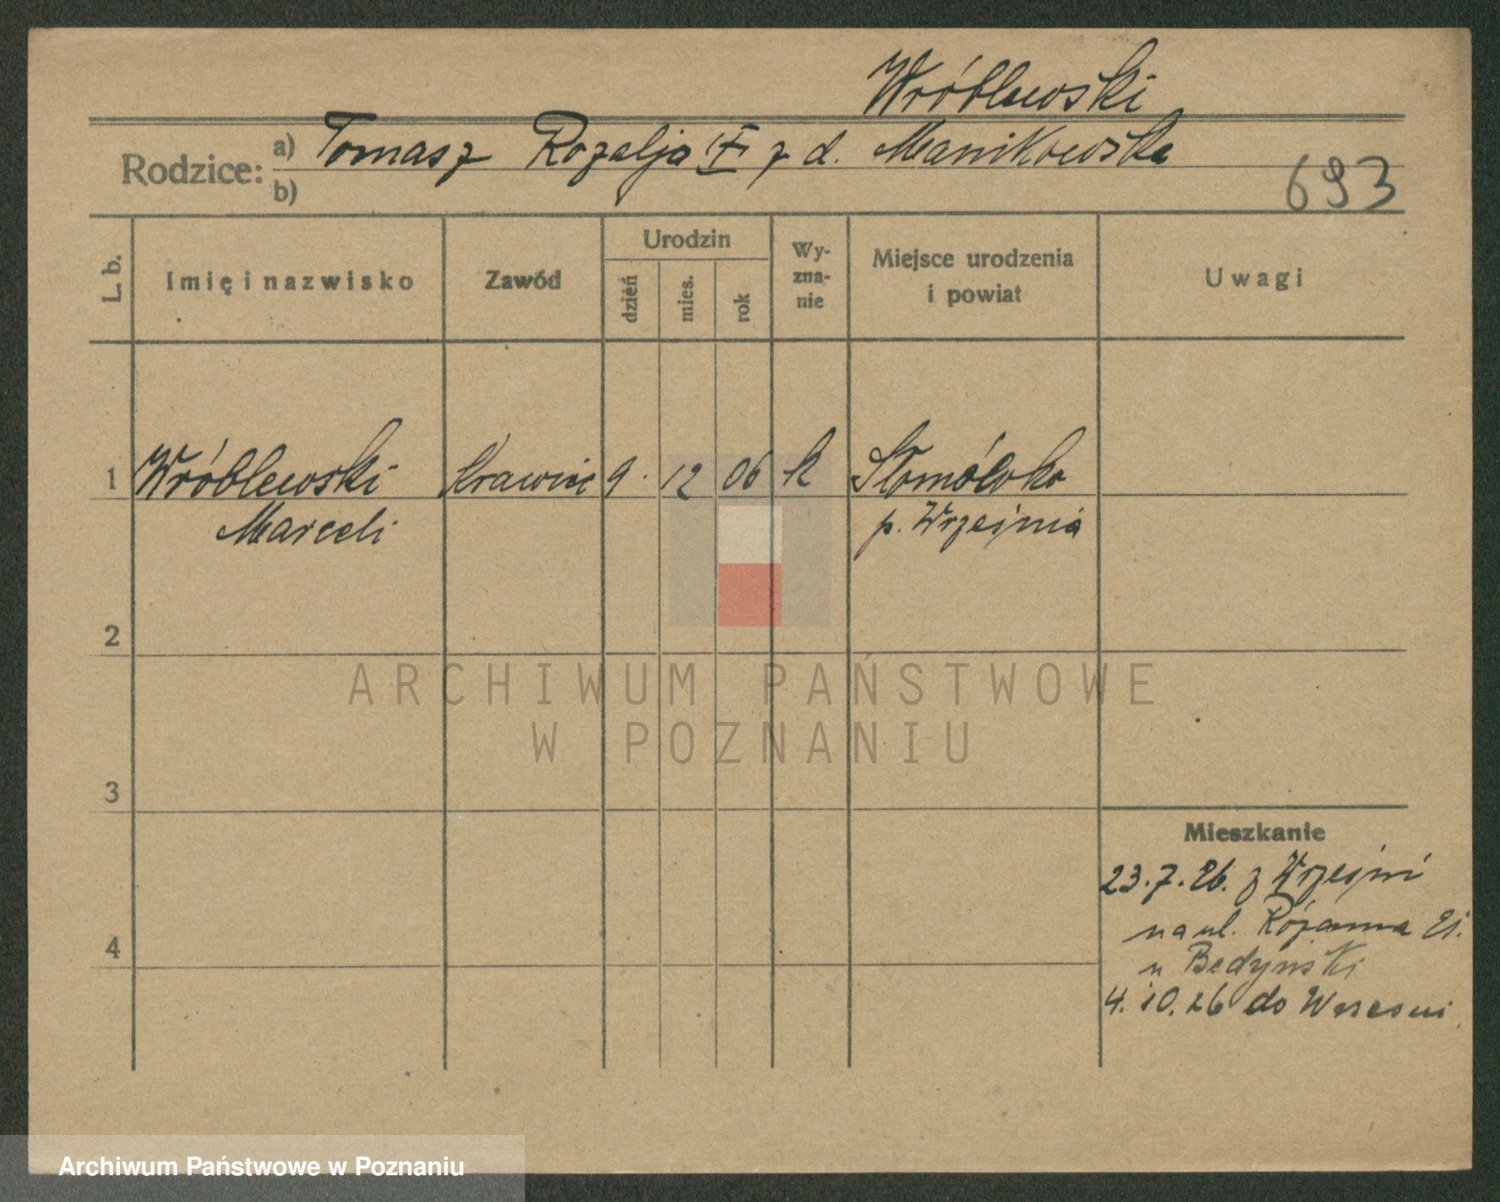 Wróblewski
Rodzice: a) Tomasz Rozalja z d. Manikowska
b)
693
L. b.
Imię i nazwisko
Zawód
Urodzin
dzień
mies.
rok
Wy-
zna-
nie
Miejsce urodzenia
i powiat
Uwagi
1 Wróblewski Krawiec 9. 12 06 k Słomówko
Marceli p. Września
2
3
4
Mieszkanie
23.7.26. z Wrześni
na ul. Różanna 21.
u Bedyński
4.10.26 do Wrześni
ARCHIWUM PAŃSTWOWE
W POZNANIU
Archiwum Państwowe w Poznaniu